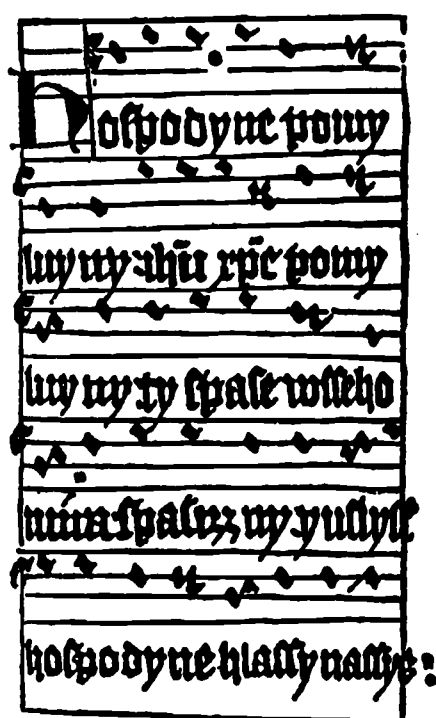 Hoſpodyne pomy
luy ny ihū xp̄e pomy
luy ny ty ſpaſe wſſeho
míra ſpaſyz ny y uslyſſ
hoſpodyne hlaſſy naſſye: